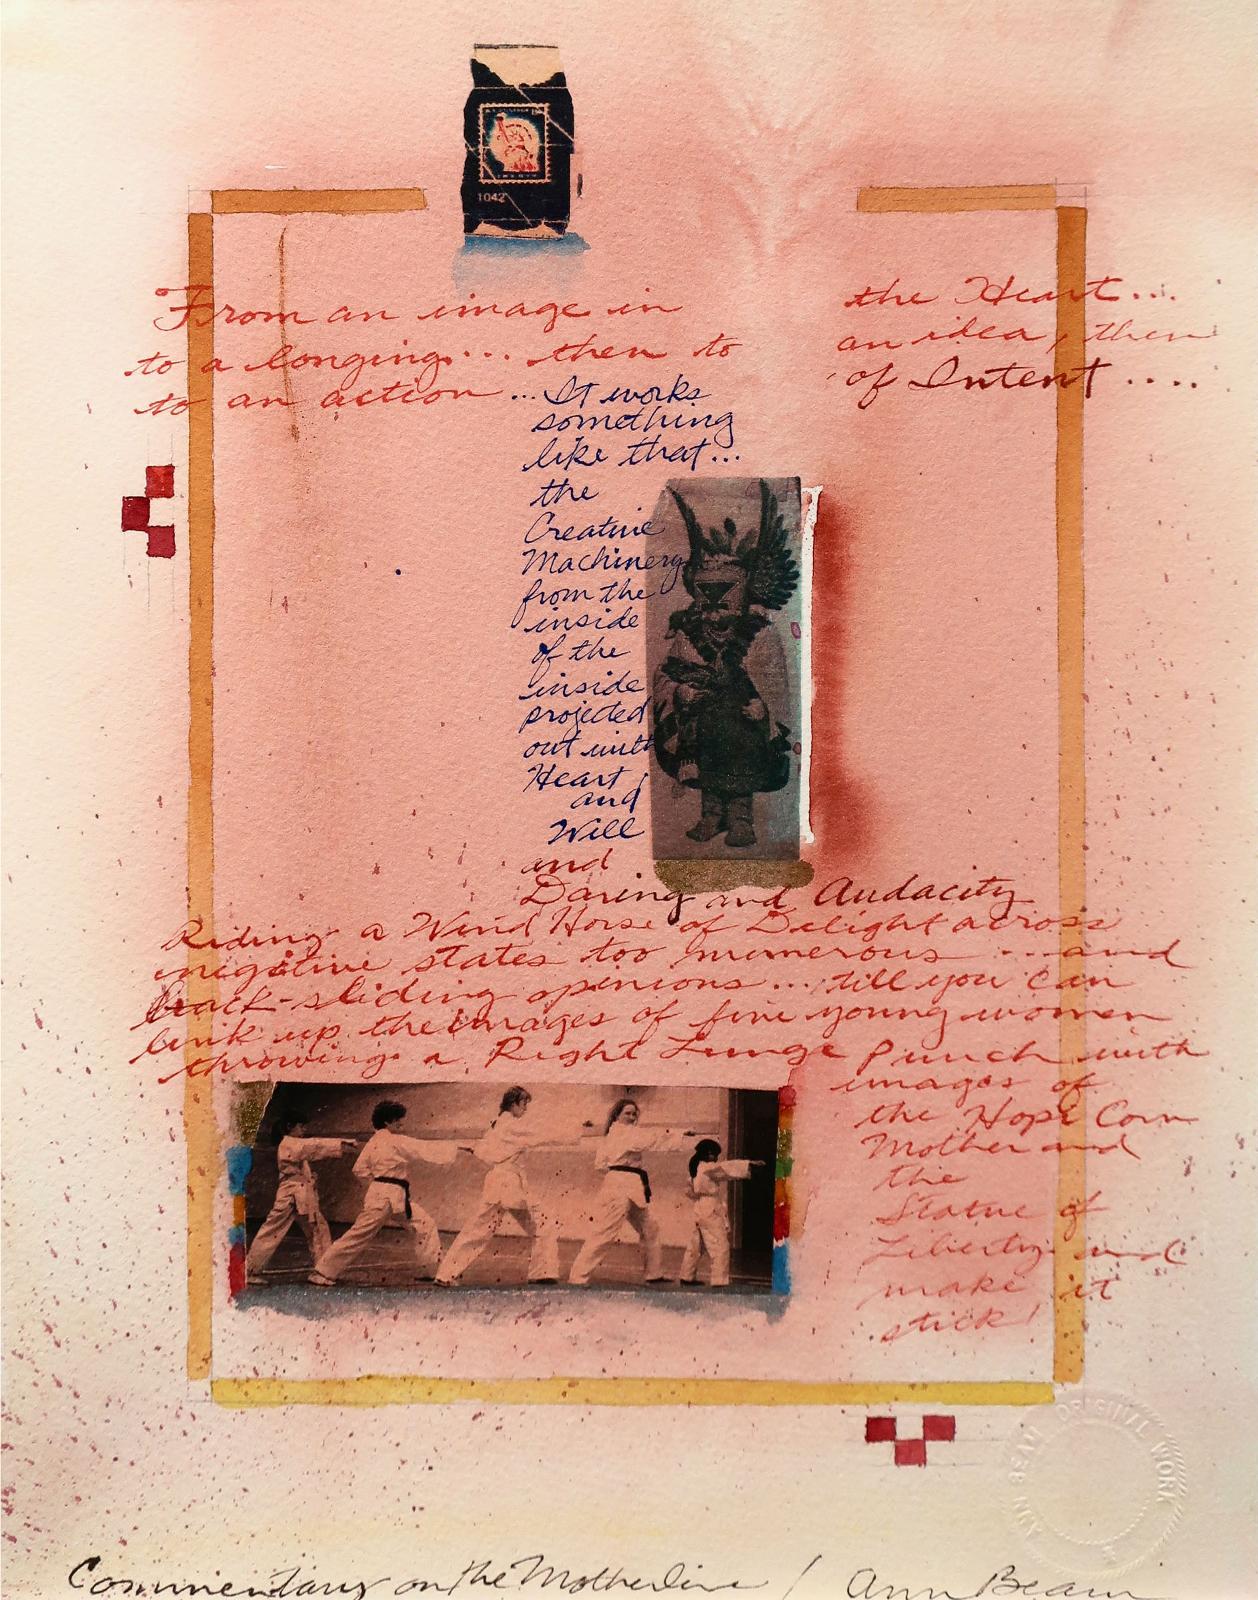 1042
From an image in the Heart...
to a longing... then to an idea, then
to an action of Intent....
...It works
something
like that...
the
Creative
Machinery
from the
inside
of the
inside
projected
out with
Heart
and
Will
and
Daring and Audacity
Riding a Wind Horse of Delight across
negative states too numerous ...and
back-sliding opinions... till you can
link up the images of five young women
throwing a Right Lunge Punch with
images of
the Hopi Corn
Mother and
the
Statue of
Liberty and
make it
stick!
ANN BEAM ORIGINAL WORK
Commentary on the Motherline / Ann Beam